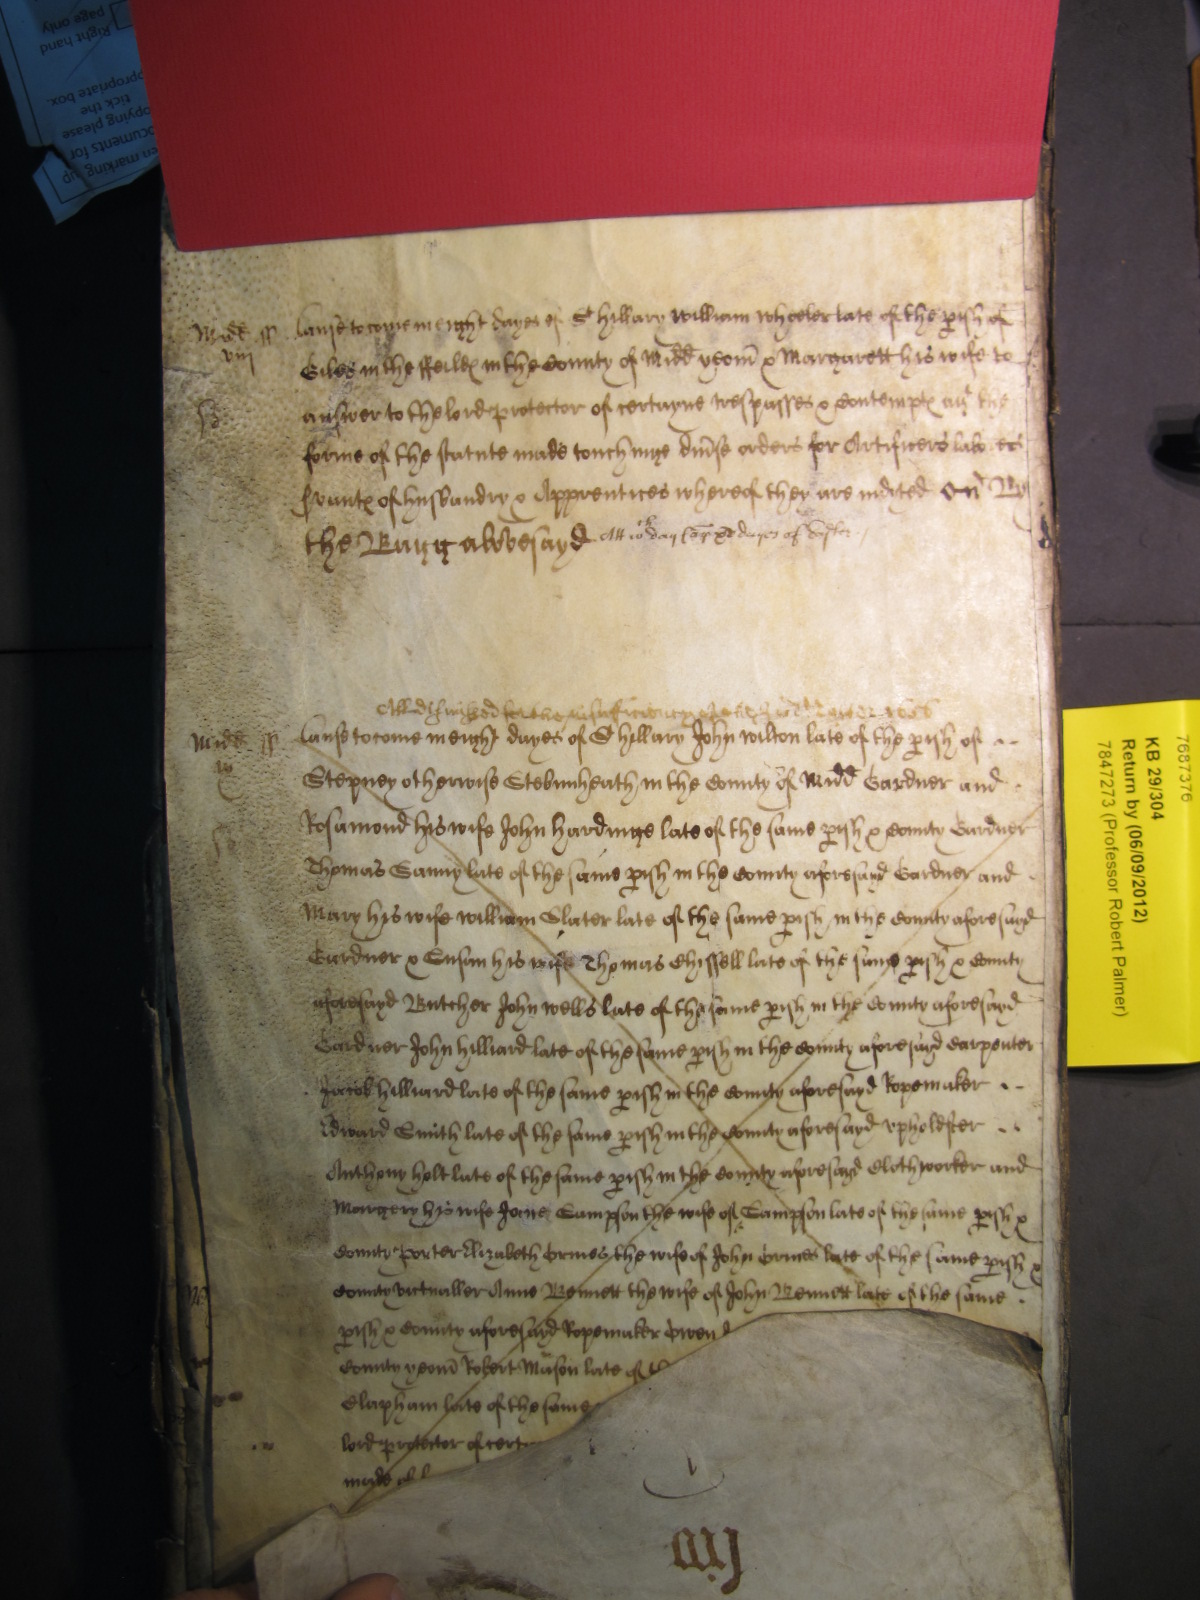 Right hand
page only
tick the
appropriate box.
copying please
documents for
en marking up
Midd ss
viij
Cause to come in eight dayes of St hillary William Wheeler late of the pish of
Giles in the ffeildℯ in the County of Midd yeom & Margarett his wife to
answer to the lord protector of certayne trespasses & Contemptℯ agt the
forme of the statute made touchinge divse orders for Artificers labores
svantℯ of husbandry & Apprentices whereof they are indited On By
the Bagg abovesayd
dayes of
Midd ss
Cause to come in eight dayes of St hillary John Wilton late of the pish of
Stepney otherwise Stebunheath in the County of Midd Gardner and
Rosamond his wife John Hardinge late of the same pish & County Gardner
Thomas Canny late of the same pish in the County aforesayd Gardner and
Mary his wife William Slater late of the same pish in the County aforesayd
Gardner & Susan his wife Thomas Chissell late of the same pish & County
aforesayd Butcher John Wells late of the same pish in the County aforesayd
Gardner John Hilliard late of the same pish in the County aforesayd Carpenter
Jacob hilliard late of the same pish in the County aforesayd Ropemaker
Edward Smith late of the same pish in the County aforesayd vpholdster
Anthony holt late of the same pish in the County aforesayd Clothworker and
Margery his wife Joane Sampson the wife of Sampson late of the same pish &
County porter Elizabeth Ormes the wife of John Ormes late of the same pish &
County victualler Anne Bennett the wife of John Bennett late of the same
pish & County aforesayd Ropemaker Owen
County yeom Robert Mason late of
Clapham late of the same
lord protector of certa
made
7687376
KB 29/304
Return by (06/09/2012)
7847273 (Professor Robert Palmer)